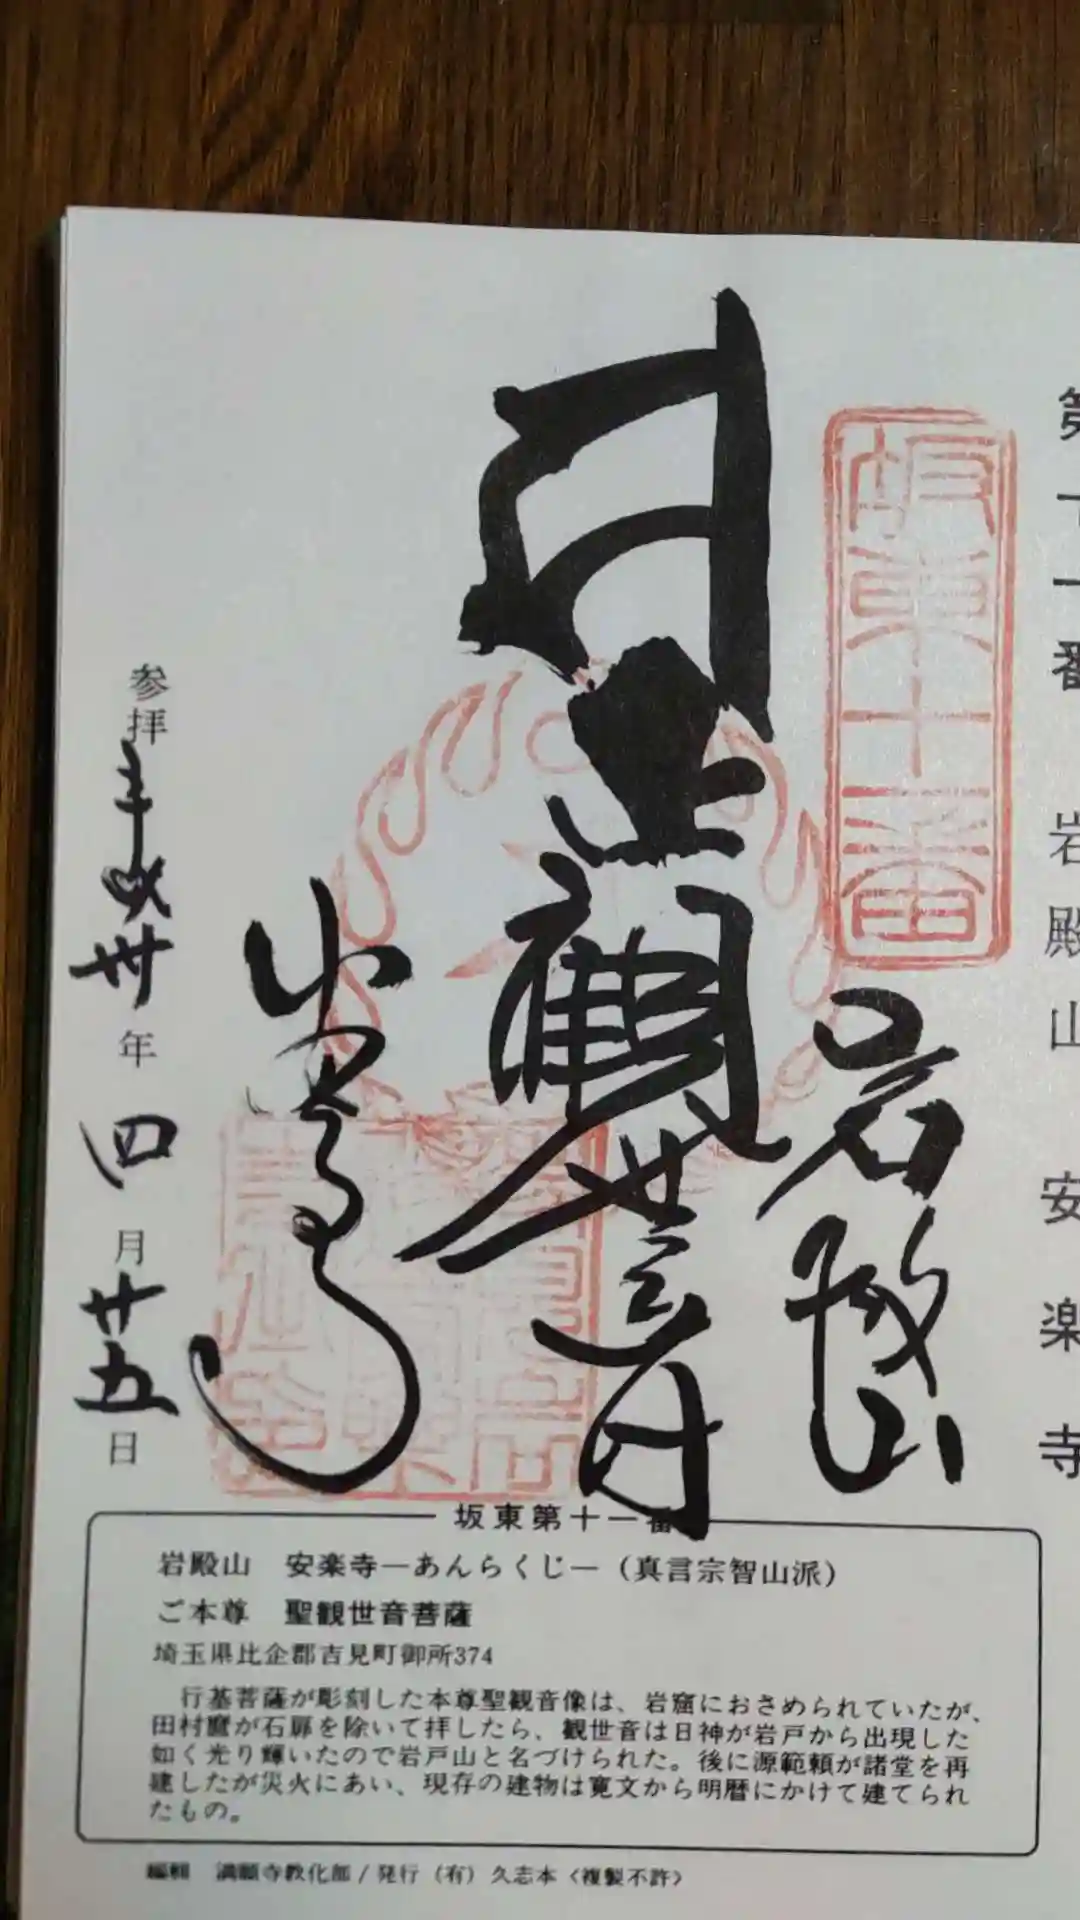 第十一番 岩殿山 安楽寺
坂東十一番
岩殿山
聖観世音
安楽寺
参拝平成卅年四月廿五日
坂東第十一番
岩殿山 安楽寺―あんらくじ―(真言宗智山派)
ご本尊 聖観世音菩薩
埼玉県比企郡吉見町御所374
行基菩薩が彫刻した本尊聖観音像は、岩窟におさめられていたが、
田村麿が石扉を除いて拝したら、観世音は日神が岩戸から出現した
如く光り輝いたので岩戸山と名づけられた。後に源範頼が諸堂を再
建したが災火にあい、現存の建物は寛文から明暦にかけて建てられ
たもの。
編輯 満願寺教化部/発行(有)久志本〈複製不許〉